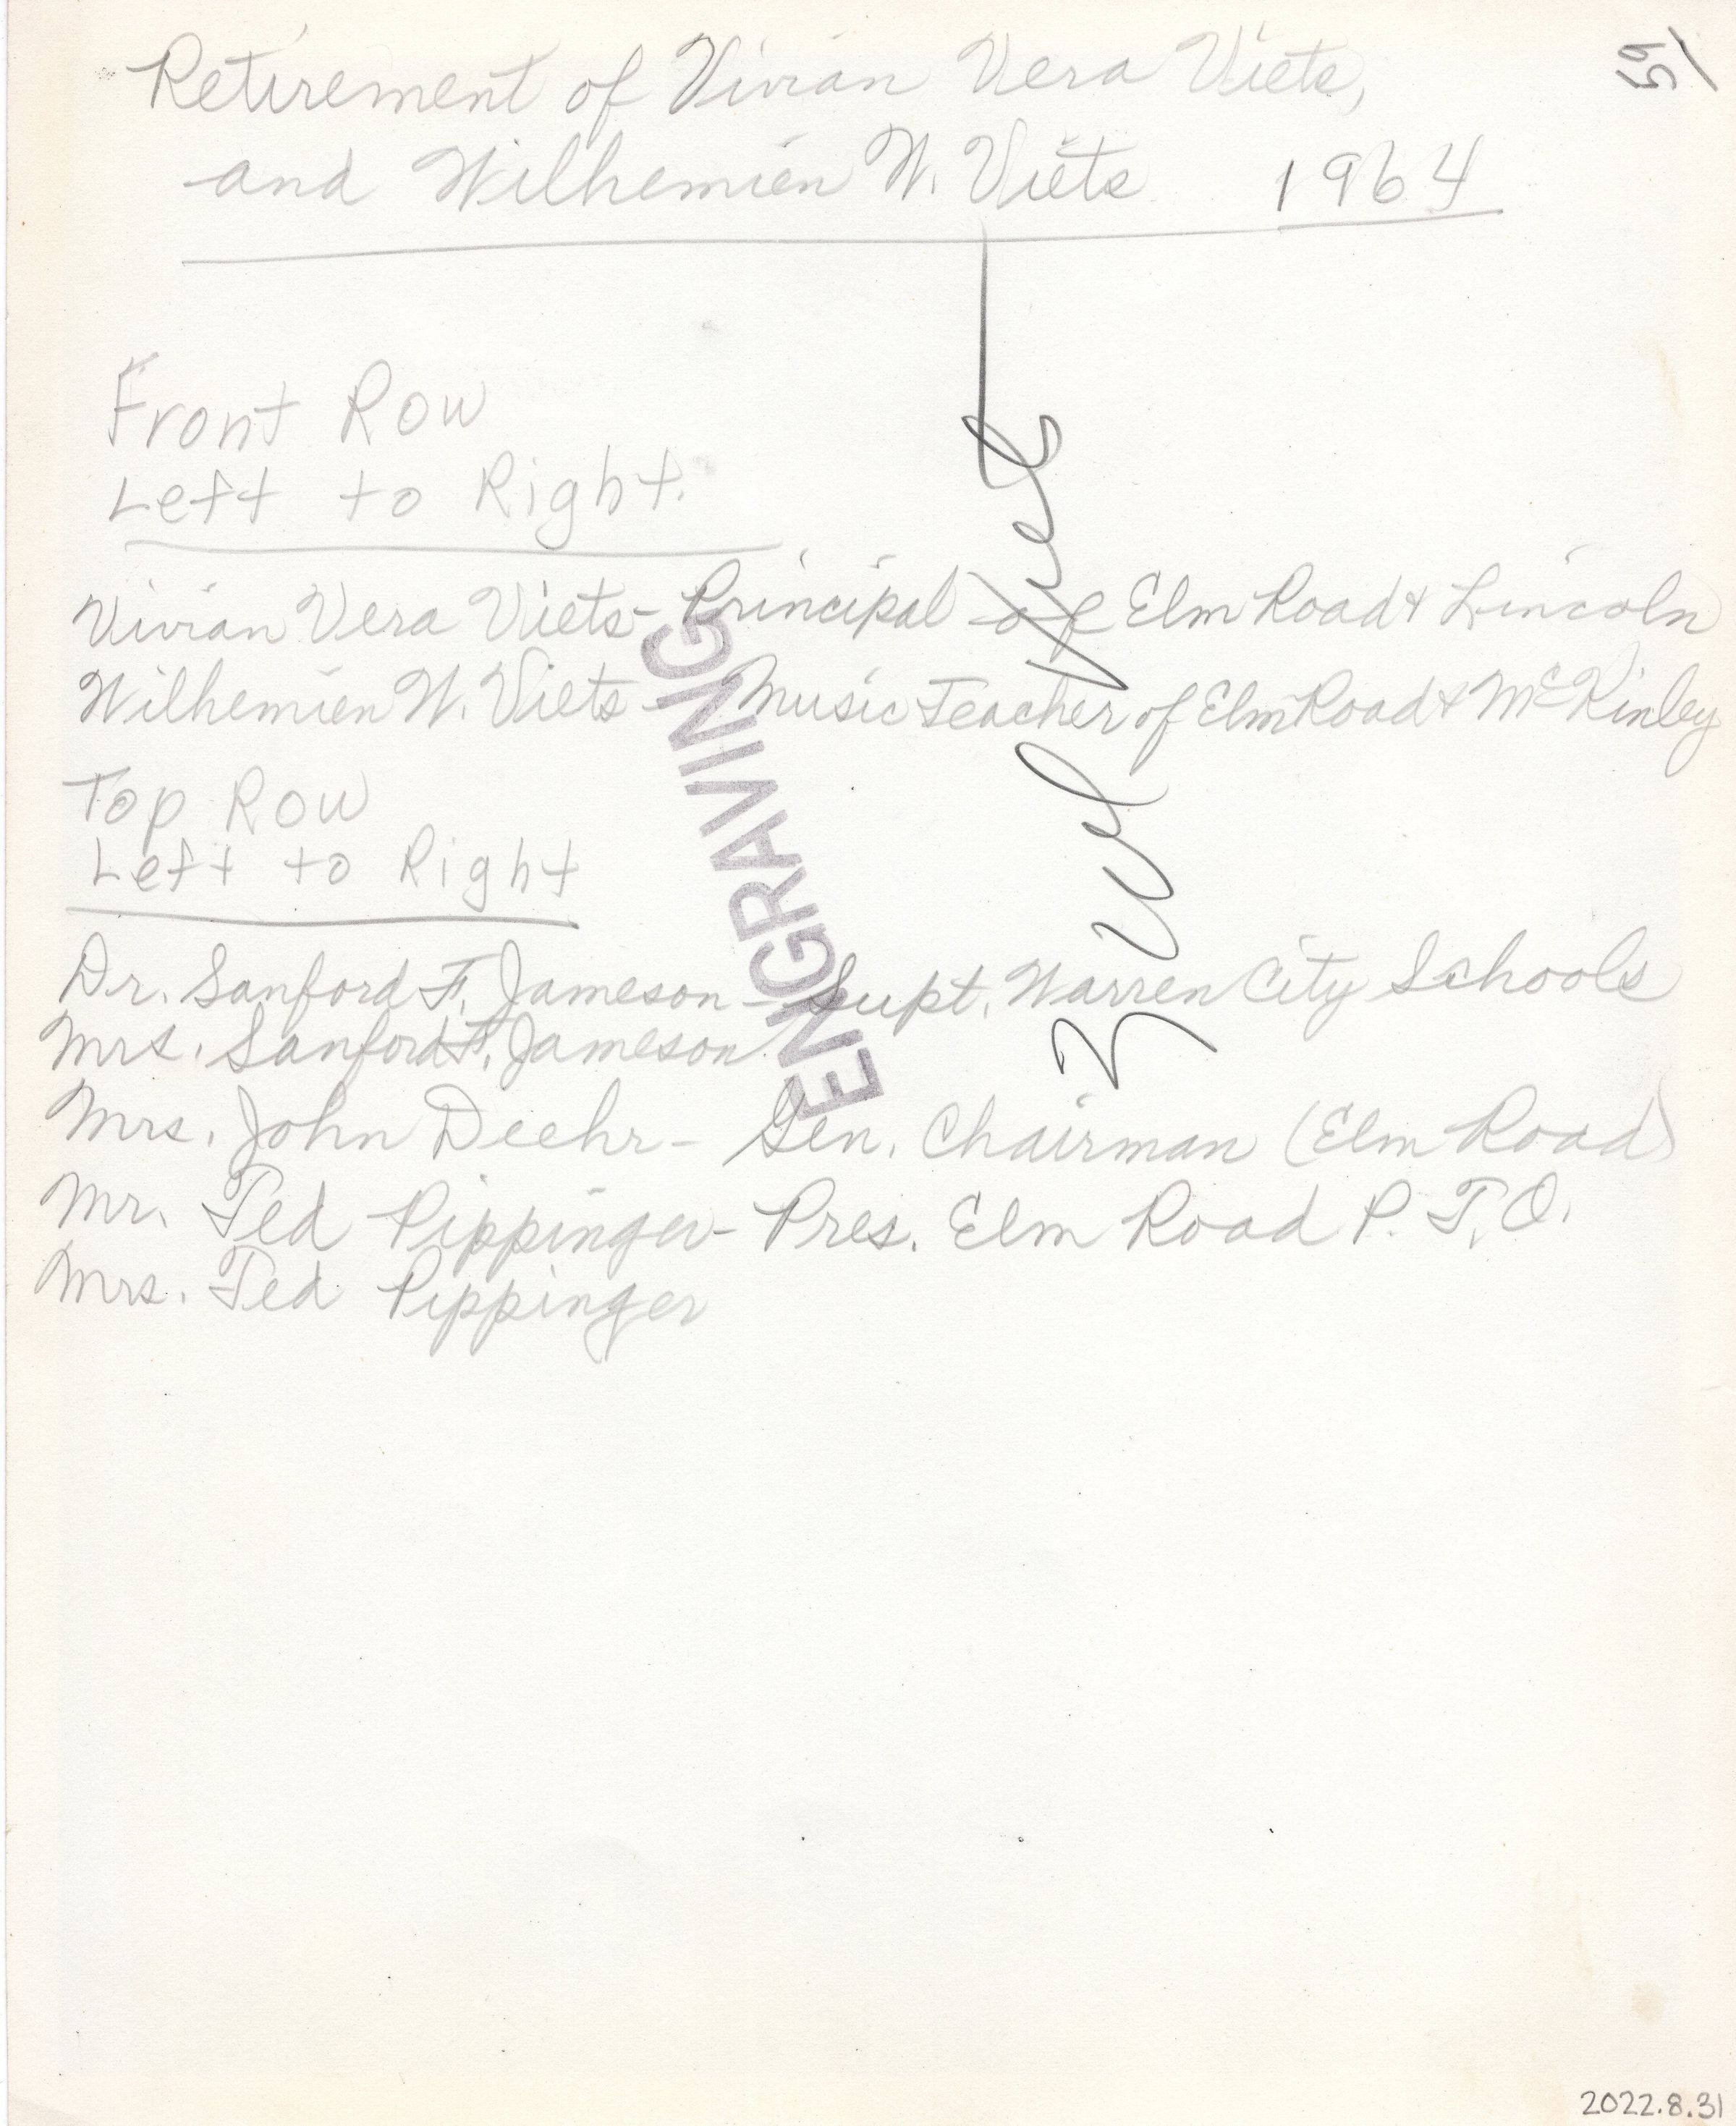 Retirement of Vivian Vera Viets,
and Wilhemien W. Viets 1964
Front Row
Left to Right.
Vivian Vera Viets - Principal of Elm Road & Lincoln
Wilhemien W. Viets - Music Teacher of Elm Road & McKinley
Top Row
Left to Right
Dr. Sanford F. Jameson - Supt. Warren City Schools
Mrs. Sanford F. Jameson
Mrs. John Deehr - Gen. Chairman (Elm Road)
Mr. Ted Pippinger - Pres. Elm Road P.T.O.
Mrs. Ted Pippinger
ENGRAVING
3 col
2022.8.31